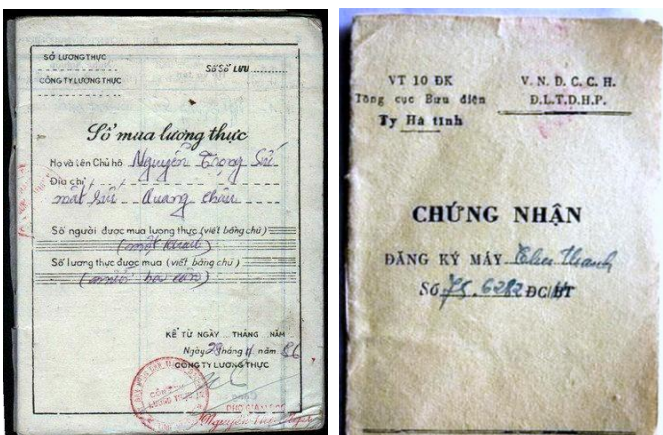 SỞ LƯƠNG THỰC
CÔNG TY LƯƠNG THỰC
Số Sổ LƯU
Sổ mua lương thực
Họ và tên Chủ hộ Nguyễn Trọng
Địa chỉ
mắt Quang Châu
Số người được mua lương thực (viết bằng chữ)
(một khẩu)
Số lương thực được mua (viết bằng chữ)
KỂ TỪ NGÀY THÁNG NĂM
Ngày 28 tháng 4 năm 86
CÔNG TY LƯƠNG THỰC
PHÓ GIÁM ĐỐC
Nguyễn
VT 10 ĐK
Tổng cục Bưu điện
Ty Hà tĩnh
V. N. D. C. C. H.
Đ.L.T.D.H.P.
CHỨNG NHẬN
ĐĂNG KÝ MÁY Thu thanh
Số 75.6282 ĐC/HT